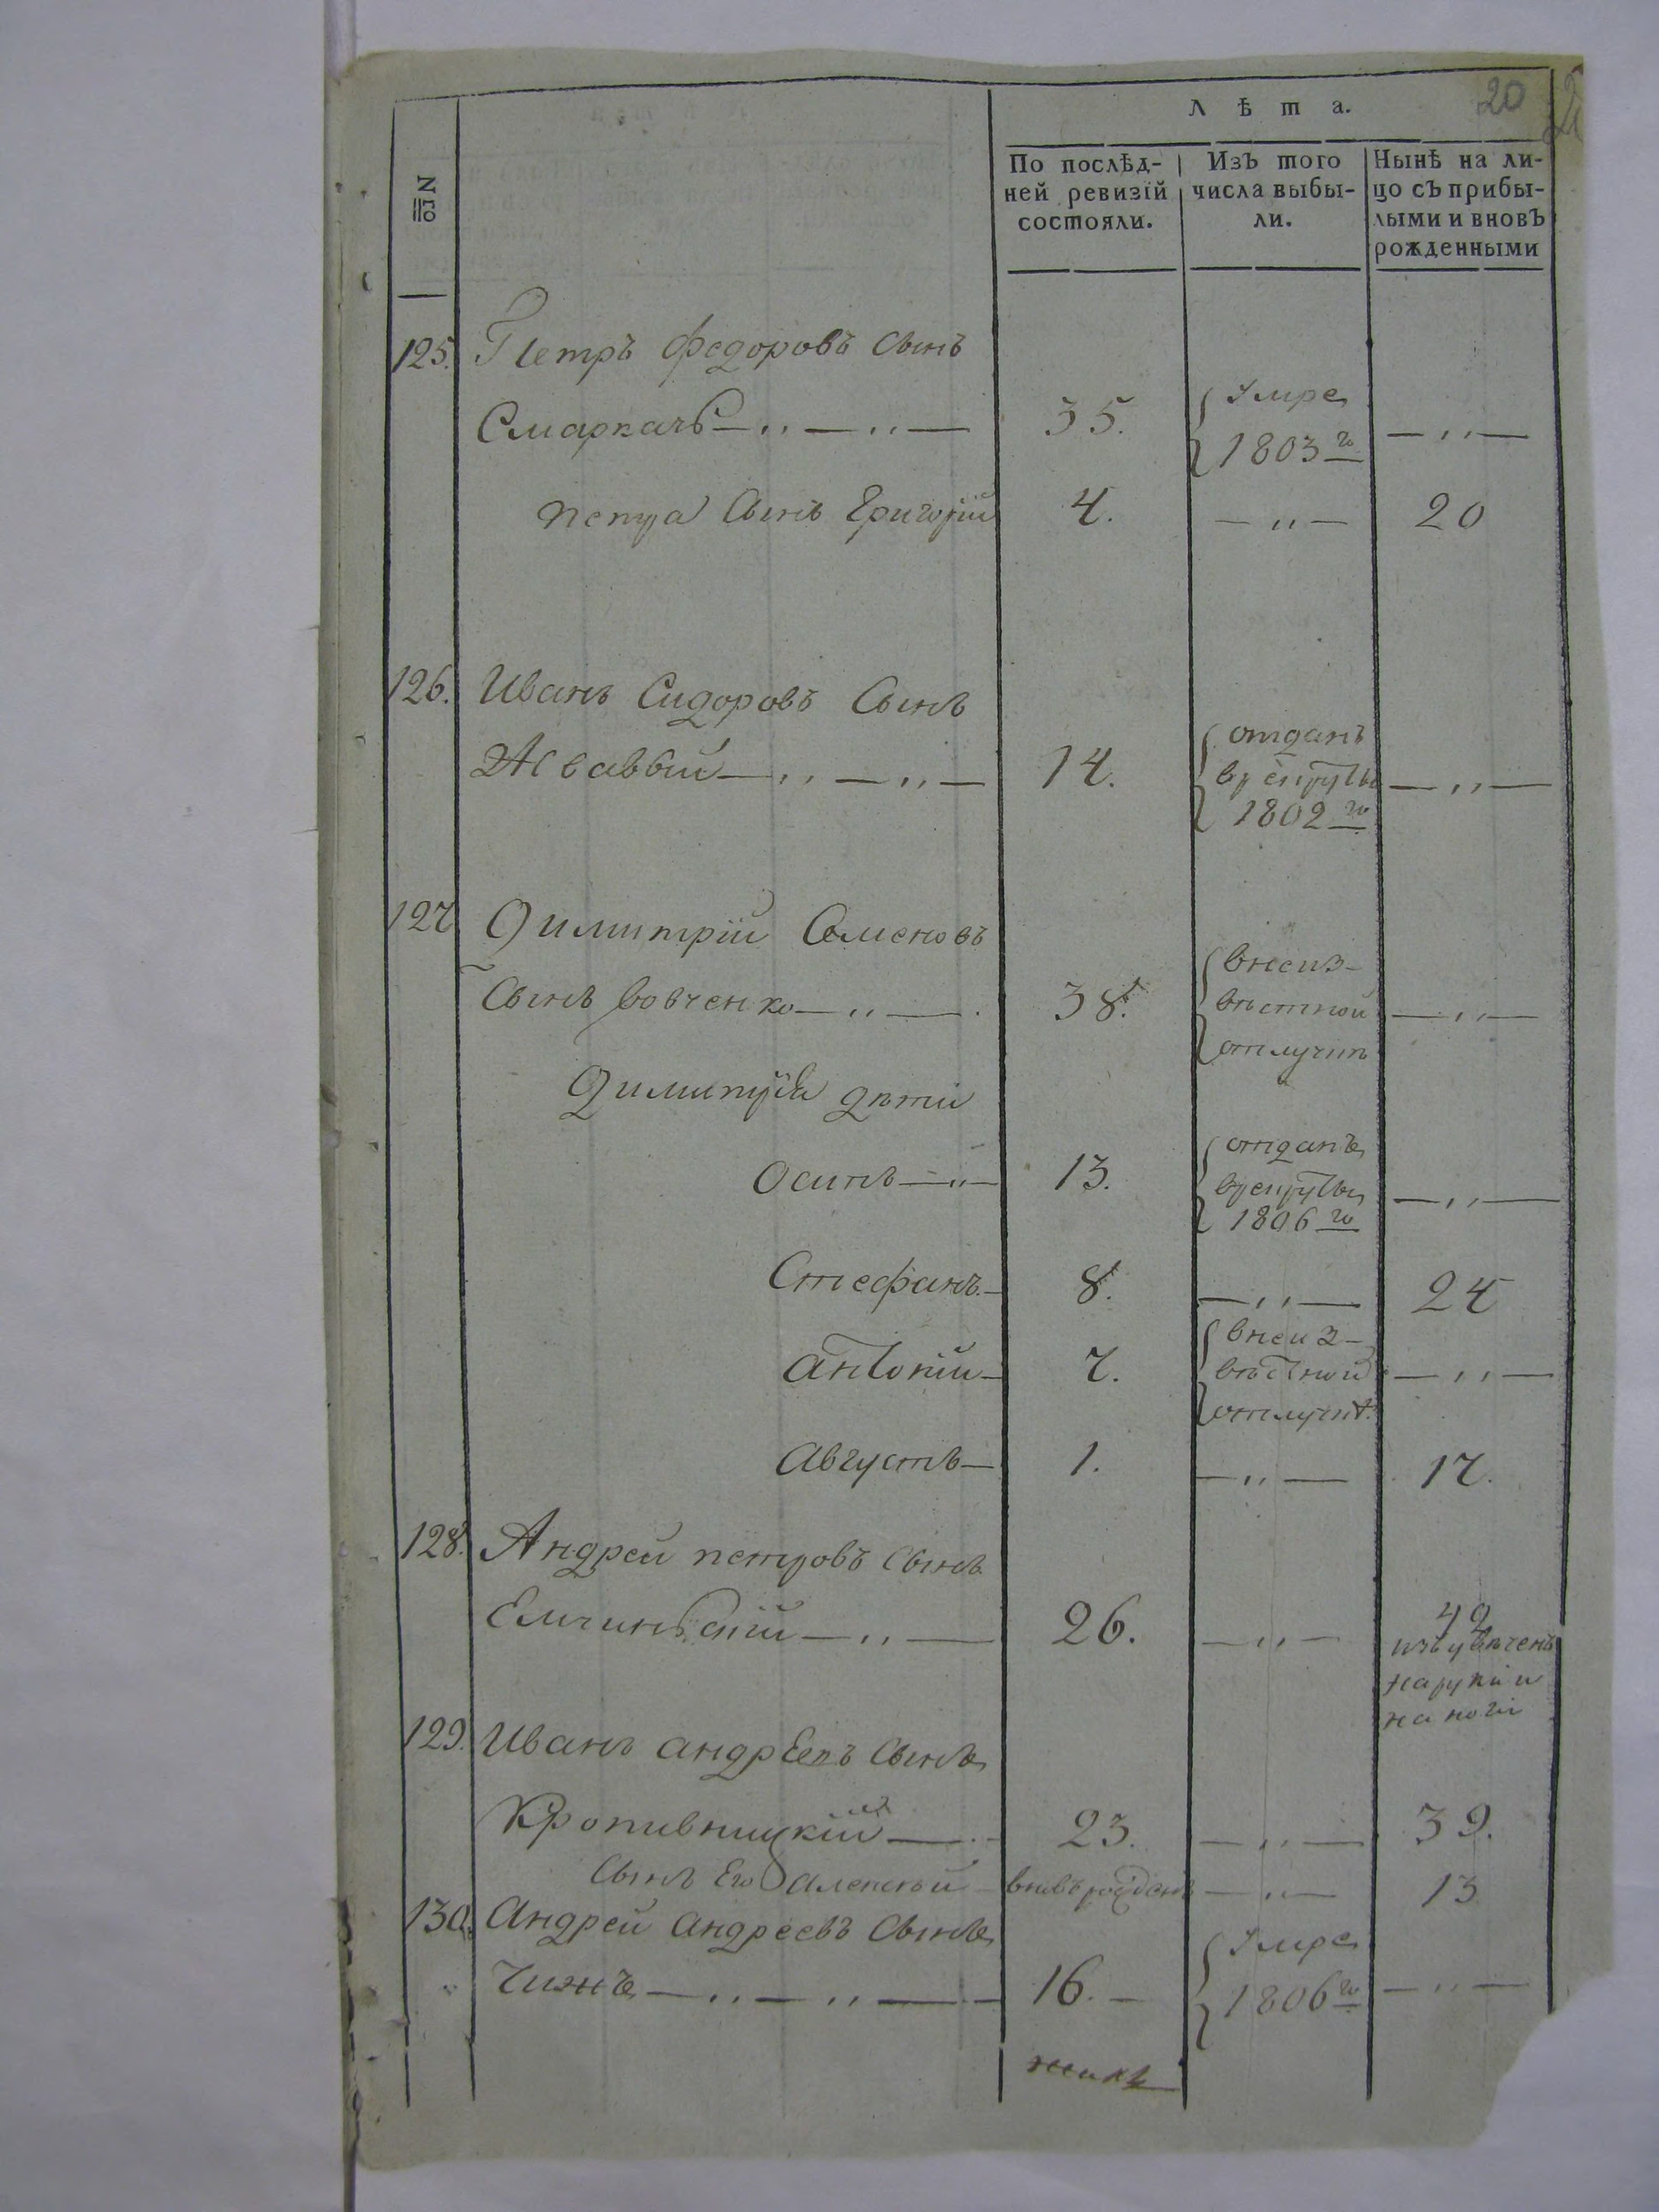 20
№
Лѣта.
По послѣд-
ней ревизїй
состояли.
Изъ того
числа выбы-
ли.
Нынѣ на ли-
цо съ прибы-
лыми и вновь
рожденными
125. Петръ Федоровъ Сынъ
Смаркачъ — „ — „ — 35. Умре 1803го — „ —
Петра Сынъ Григорїй 4. — „ — 20
126. Иванъ Сидоровъ Сынъ
Жвавый — „ — „ — 14. отданъ
1802го — „ —
127 Димитрїй Семеновъ
Сынъ Вовченко — „ — 38. внеиз-
вѣстной — „ —
отлучкѣ
Димитрїя дѣти
Осипъ — „ — 13. отданъ
1806го — „ —
Стефанъ — 8. — „ — 24
Антонїй — 7. внеиз-
вѣстной — „ —
Августъ — 1. — „ — 17.
128. Андрей Петровъ Сынъ
26. — „ — 42
изъувѣченъ
на руки и
на ноги
129. Иванъ Андреевъ Сынъ
Кропивницкїй — 23. — „ — 39.
Сынъ Его Алексѣй — вновь рожденъ — „ — 13
130. Андрей Андреевъ Сынъ
Чижъ — „ — „ — 16. — Умре 1806го — „ —